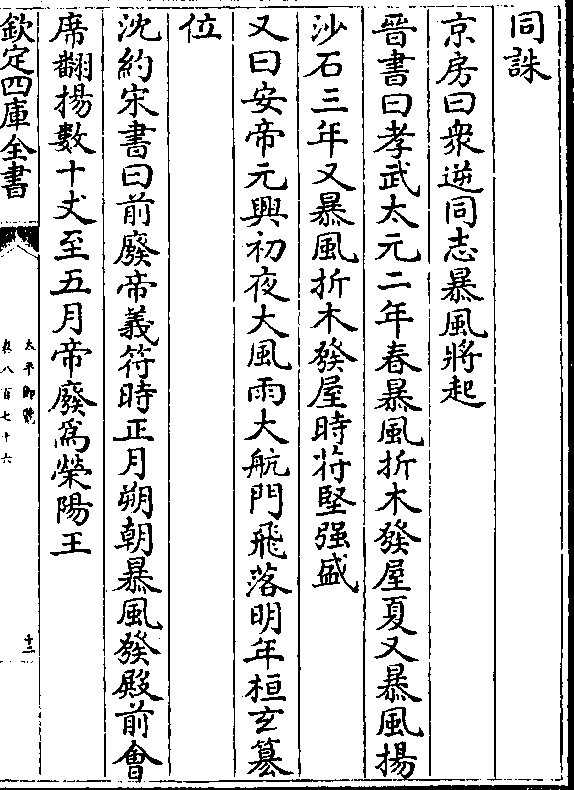 同誅
京房曰衆逆同志暴風將起
晉書曰孝武太元二年春暴風折木發屋夏又暴風揚
沙石三年又暴風折木發屋時苻堅强盛
又曰安帝元興初夜大風雨大航門飛落明年桓玄篡
位
沈約宋書曰前廢帝義符時正月朔朝暴風發殿前會
席翻揚數十丈至五月帝廢爲滎陽王
欽定四庫全書
太平御覽
卷八百七十六
十三